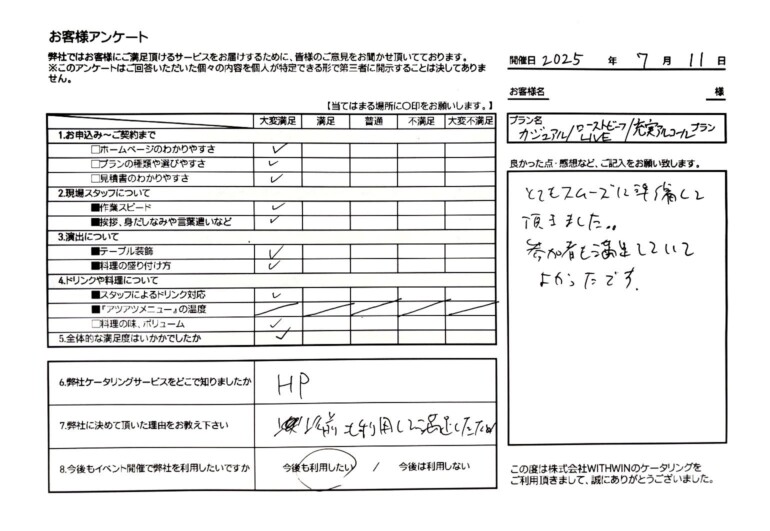 お客様アンケート
弊社ではお客様にご満足頂けるサービスをお届けするために、皆様のご意見をお聞かせ頂いております。
※このアンケートはご回答いただいた個々の内容を個人が特定できる形で第三者に開示することは決してありま
せん。
開催日 2025 年 7 月 11 日
お客様名 様
【当てはまる場所に〇印をお願いします。】
大変満足 満足 普通 不満足 大変不満足
1.お申込み～ご契約まで
□ホームページのわかりやすさ ✓
□プランの種類や選びやすさ ✓
□見積書のわかりやすさ ✓
2.現場スタッフについて
■作業スピード ✓
■挨拶、身だしなみや言葉遣いなど ✓
3.演出について
■テーブル装飾 ✓
■料理の盛り付け方 ✓
4.ドリンクや料理について
■スタッフによるドリンク対応 ✓
■『アツアツメニュー』の温度
□料理の味、ボリューム ✓
5.全体的な満足度はいかかでしたか ✓
6.弊社ケータリングサービスをどこで知りましたか HP
7.弊社に決めて頂いた理由をお教え下さい 以前も利用して満足したため
8.今後もイベント開催で弊社を利用したいですか 今後も利用したい / 今後は利用しない
プラン名
カジュアル/ローストビーフLIVE/充実アルコールプラン
良かった点・感想など、ご記入をお願い致します。
とてもスムーズに準備して
頂きました。
参加者も満足していて
よかったです。
この度は株式会社WITHWINのケータリングを
ご利用頂きまして、誠にありがとうございました。